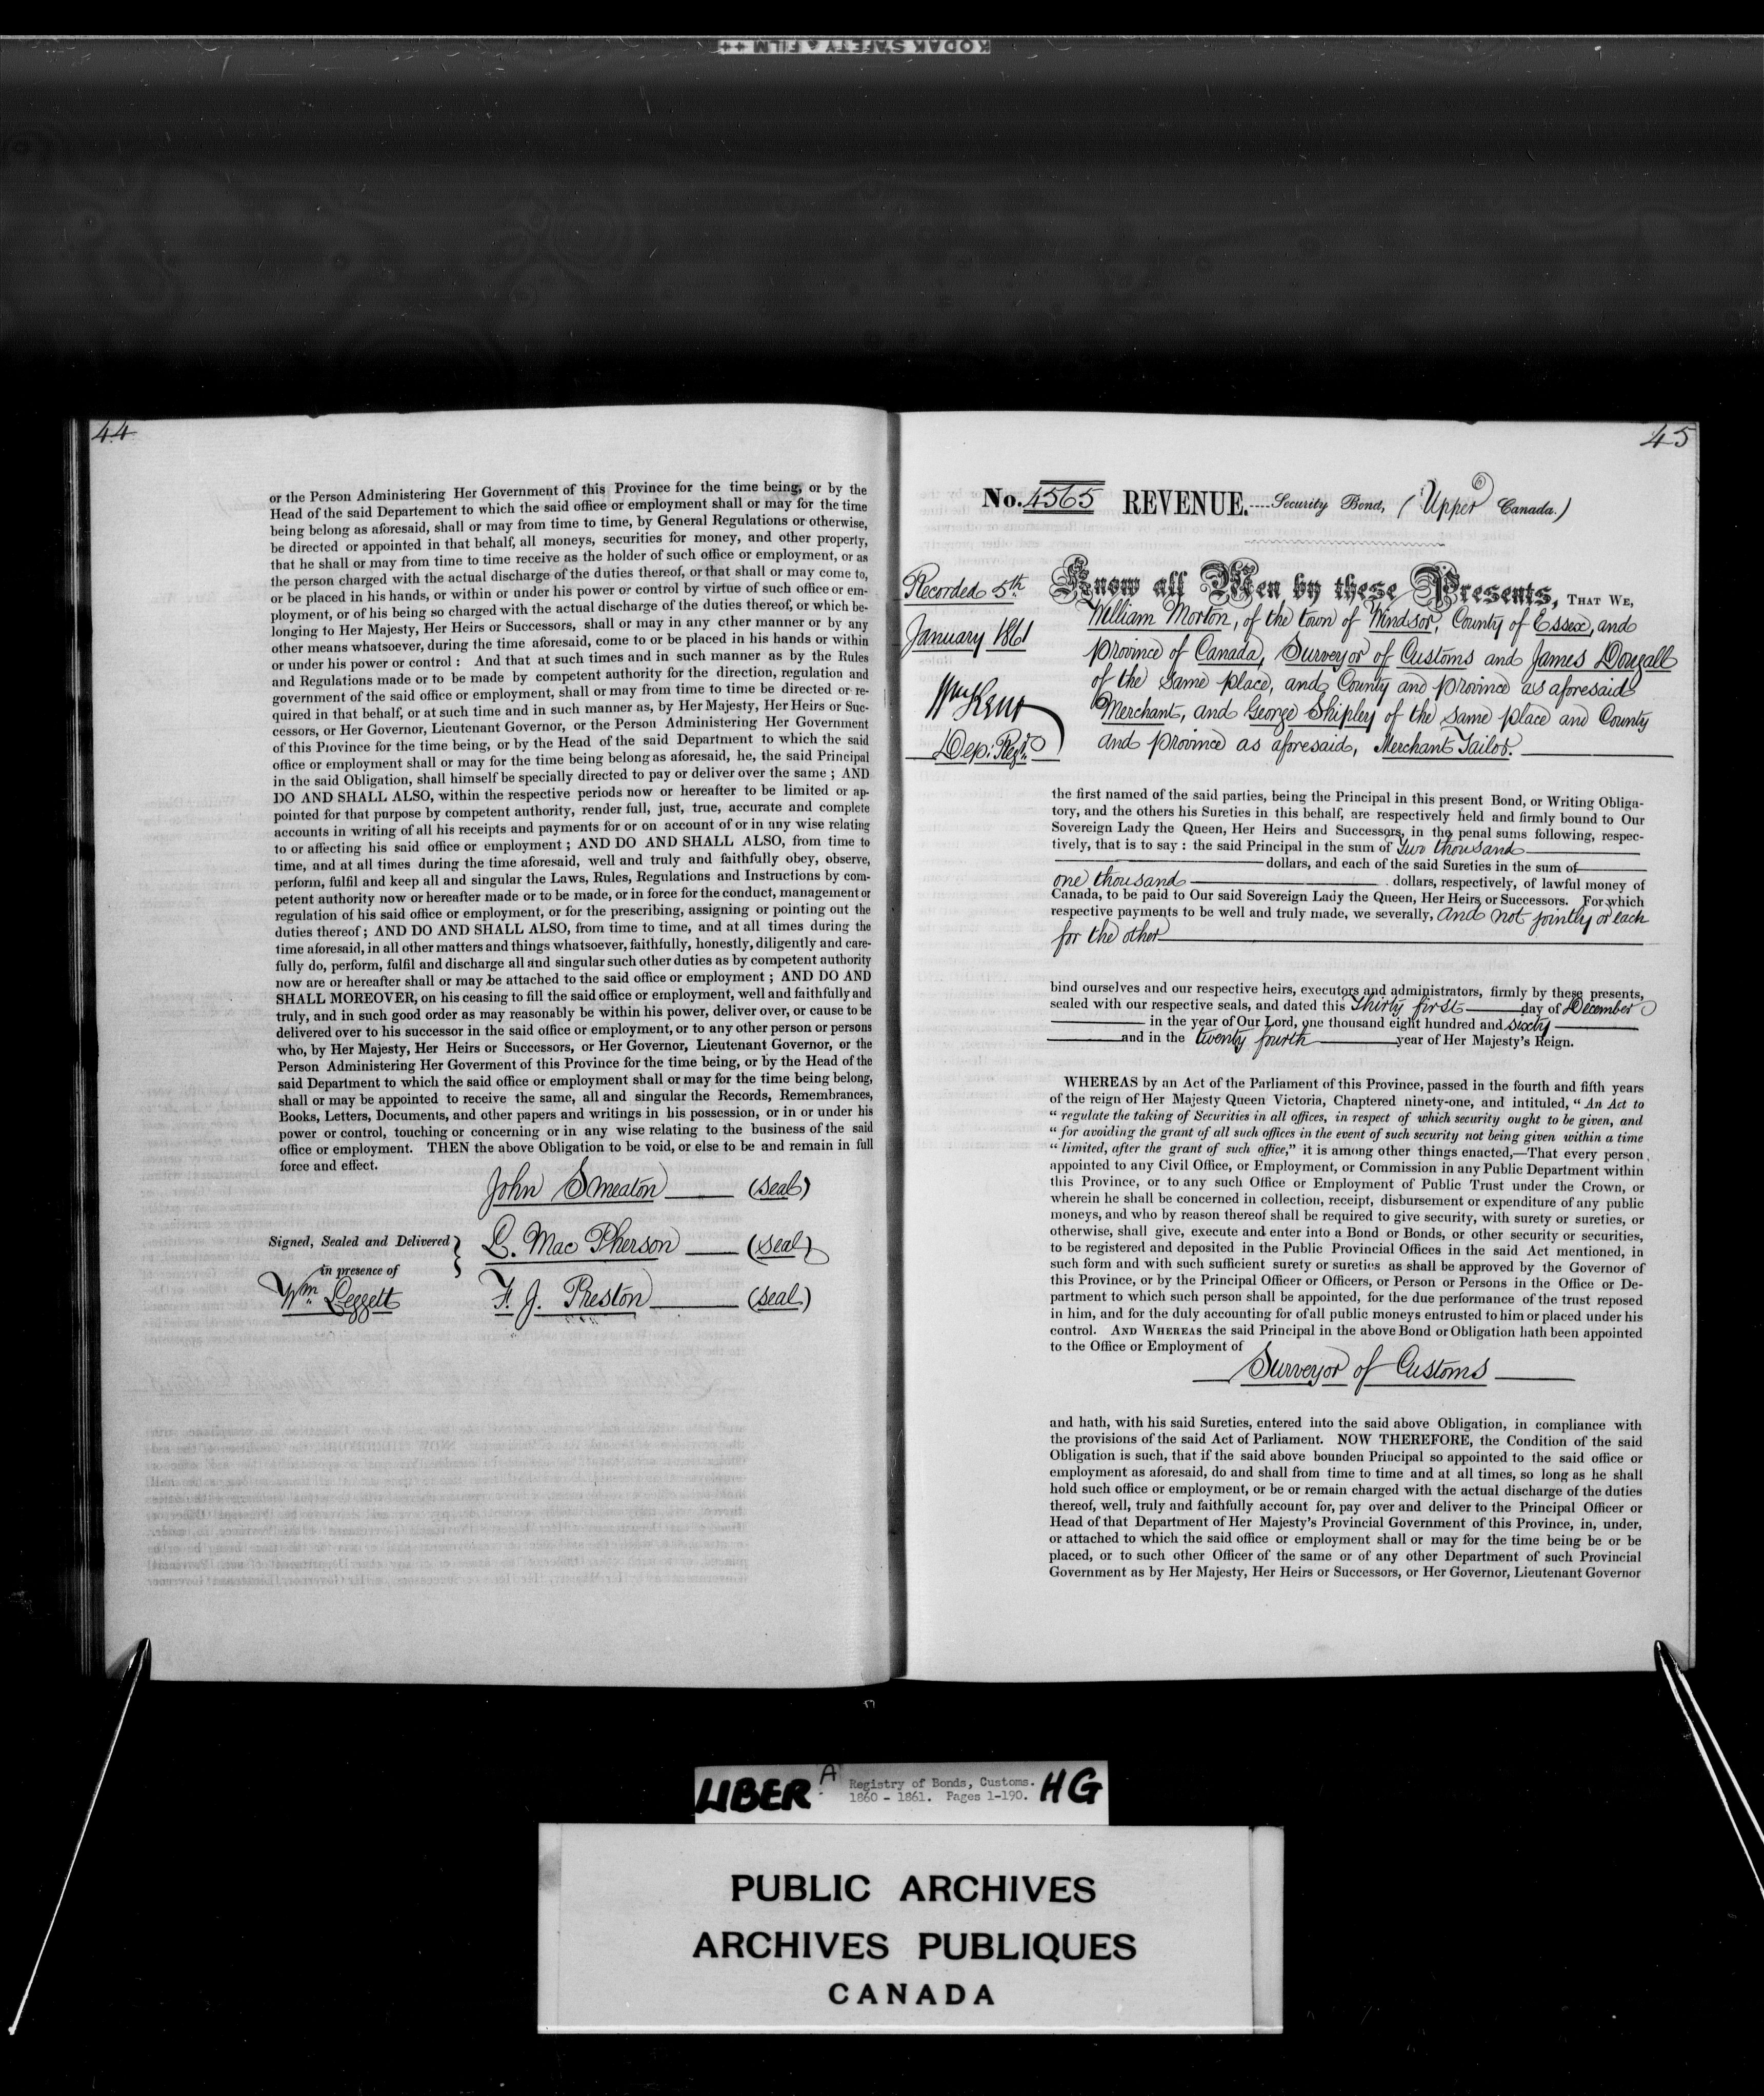 KODAK SAFETY A FILM ++
44
or the Person Administering Her Government of this Province for the time being, or by the
Head of the said Departement to which the said office or employment shall or may for the time
being belong as aforesaid, shall or may from time to time, by General Regulations or otherwise,
be directed or appointed in that behalf, all moneys, securities for money, and other property,
that he shall or may from time to time receive as the holder of such office or employment, or as
the person charged with the actual discharge of the duties thereof, or that shall or may come to,
or be placed in his hands, or within or under his power or control by virtue of such office or em-
ployment, or of his being so charged with the actual discharge of the duties thereof, or which be-
longing to Her Majesty, Her Heirs or Successors, shall or may in any other manner or by any
other means whatsoever, during the time aforesaid, come to or be placed in his hands or within
or under his power or control : And that at such times and in such manner as by the Rules
and Regulations made or to be made by competent authority for the direction, regulation and
government of the said office or employment, shall or may from time to time be directed or re-
quired in that behalf, or at such time and in such manner as, by Her Majesty, Her Heirs or Suc-
cessors, or Her Governor, Lieutenant Governor, or the Person Administering Her Government
of this Province for the time being, or by the Head of the said Department to which the said
office or employment shall or may for the time being belong as aforesaid, he, the said Principal
in the said Obligation, shall himself be specially directed to pay or deliver over the same ; AND
DO AND SHALL ALSO, within the respective periods now or hereafter to be limited or ap-
pointed for that purpose by competent authority, render full, just, true, accurate and complete
accounts in writing of all his receipts and payments for or on account of or in any wise relating
to or affecting his said office or employment ; AND DO AND SHALL ALSO, from time to
time, and at all times during the time aforesaid, well and truly and faithfully obey, observe,
perform, fulfil and keep all and singular the Laws, Rules, Regulations and Instructions by com-
petent authority now or hereafter made or to be made, or in force for the conduct, management or
regulation of his said office or employment, or for the prescribing, assigning or pointing out the
duties thereof ; AND DO AND SHALL ALSO, from time to time, and at all times during the
time aforesaid, in all other matters and things whatsoever, faithfully, honestly, diligently and care-
fully do, perform, fulfil and discharge all and singular such other duties as by competent authority
now are or hereafter shall or may be attached to the said office or employment ; AND DO AND
SHALL MOREOVER, on his ceasing to fill the said office or employment, well and faithfully and
truly, and in such good order as may reasonably be within his power, deliver over, or cause to be
delivered over to his successor in the said office or employment, or to any other person or persons
who, by Her Majesty, Her Heirs or Successors, or Her Governor, Lieutenant Governor, or the
Person Administering Her Goverment of this Province for the time being, or by the Head of the
said Department to which the said office or employment shall or may for the time being belong,
shall or may be appointed to receive the same, all and singular the Records, Remembrances,
Books, Letters, Documents, and other papers and writings in his possession, or in or under his
power or control, touching or concerning or in any wise relating to the business of the said
office or employment. THEN the above Obligation to be void, or else to be and remain in full
force and effect.
John Smeaton (seal)
Signed, Sealed and Delivered } L. Mac Pherson (seal)
in presence of
Wm Leggett F. J. Preston (seal)
45
No. 4565 REVENUE.----Security Bond, (Upper Canada.)
Recorded 5th
January 1861
Wm Kent
Dep: Regr.
Know all Men by these Presents, THAT WE,
William Morton, of the town of Windsor, County of Essex, and
province of Canada, Surveyor of Customs and James Dougall
of the same place, and County and province as aforesaid
Merchant, and George Shipley of the same place and County
and province as aforesaid, Merchant Tailor.
the first named of the said parties, being the Principal in this present Bond, or Writing Obliga-
tory, and the others his Sureties in this behalf, are respectively held and firmly bound to Our
Sovereign Lady the Queen, Her Heirs and Successors, in the penal sums following, respec-
tively, that is to say : the said Principal in the sum of two thousand
dollars, and each of the said Sureties in the sum of
one thousand dollars, respectively, of lawful money of
Canada, to be paid to Our said Sovereign Lady the Queen, Her Heirs or Successors. For which
respective payments to be well and truly made, we severally, and not jointly or each
for the other
bind ourselves and our respective heirs, executors and administrators, firmly by these presents,
sealed with our respective seals, and dated this Thirty first day of December
in the year of Our Lord, one thousand eight hundred and sixty
and in the twenty fourth year of Her Majesty's Reign.
WHEREAS by an Act of the Parliament of this Province, passed in the fourth and fifth years
of the reign of Her Majesty Queen Victoria, Chaptered ninety-one, and intituled, “ An Act to
“ regulate the taking of Securities in all offices, in respect of which security ought to be given, and
“ for avoiding the grant of all such offices in the event of such security not being given within a time
“ limited, after the grant of such office,” it is among other things enacted,—That every person
appointed to any Civil Office, or Employment, or Commission in any Public Department within
this Province, or to any such Office or Employment of Public Trust under the Crown, or
wherein he shall be concerned in collection, receipt, disbursement or expenditure of any public
moneys, and who by reason thereof shall be required to give security, with surety or sureties, or
otherwise, shall give, execute and enter into a Bond or Bonds, or other security or securities,
to be registered and deposited in the Public Provincial Offices in the said Act mentioned, in
such form and with such sufficient surety or sureties as shall be approved by the Governor of
this Province, or by the Principal Officer or Officers, or Person or Persons in the Office or De-
partment to which such person shall be appointed, for the due performance of the trust reposed
in him, and for the duly accounting for of all public moneys entrusted to him or placed under his
control. AND WHEREAS the said Principal in the above Bond or Obligation hath been appointed
to the Office or Employment of
Surveyor of Customs
and hath, with his said Sureties, entered into the said above Obligation, in compliance with
the provisions of the said Act of Parliament. NOW THEREFORE, the Condition of the said
Obligation is such, that if the said above bounden Principal so appointed to the said office or
employment as aforesaid, do and shall from time to time and at all times, so long as he shall
hold such office or employment, or be or remain charged with the actual discharge of the duties
thereof, well, truly and faithfully account for, pay over and deliver to the Principal Officer or
Head of that Department of Her Majesty's Provincial Government of this Province, in, under,
or attached to which the said office or employment shall or may for the time being be or be
placed, or to such other Officer of the same or of any other Department of such Provincial
Government as by Her Majesty, Her Heirs or Successors, or Her Governor, Lieutenant Governor
LIBER A Registry of Bonds, Customs. HG
1860 - 1861. Pages 1-190.
PUBLIC ARCHIVES
ARCHIVES PUBLIQUES
CANADA